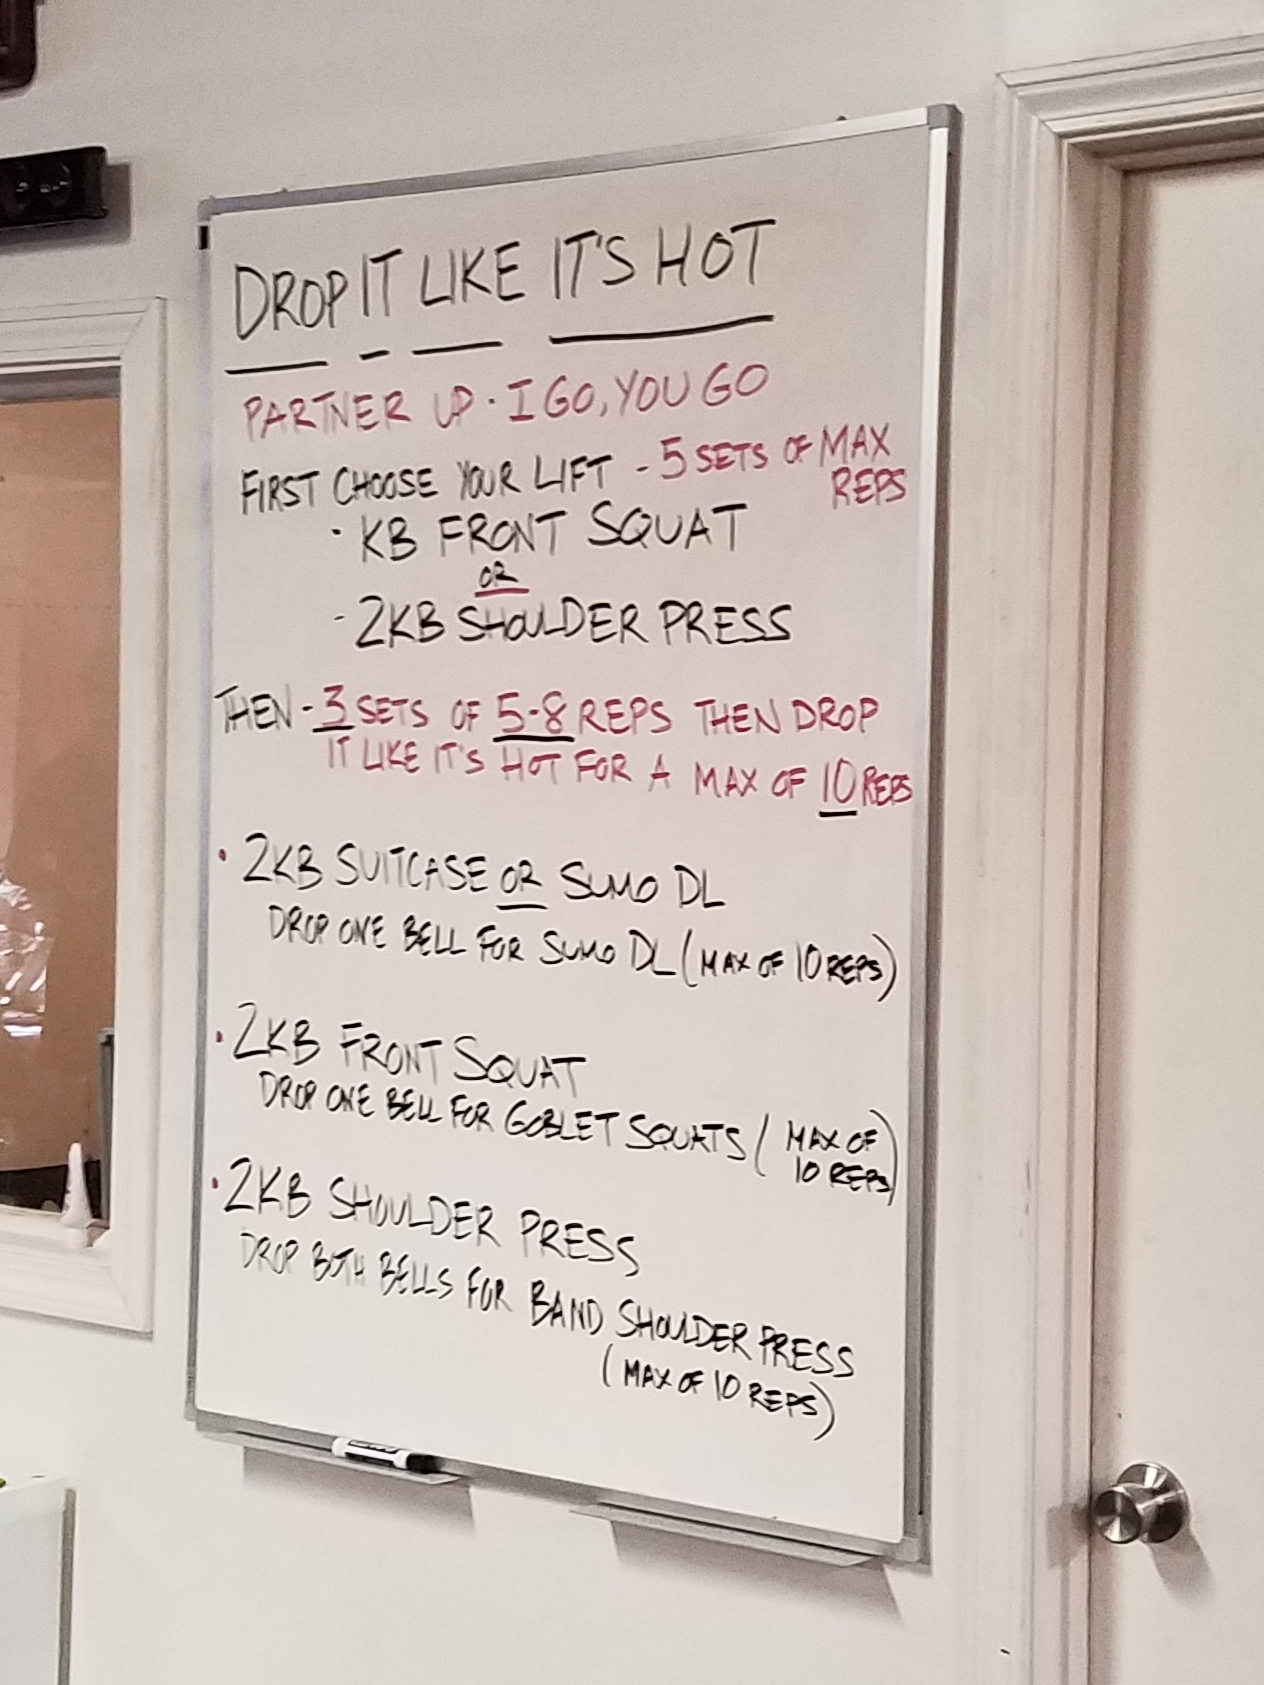 DROP IT LIKE IT'S HOT
PARTNER UP · I GO, YOU GO
FIRST CHOOSE YOUR LIFT - 5 SETS OF MAX
REPS
· KB FRONT SQUAT
OR
- 2KB SHOULDER PRESS
THEN - 3 SETS OF 5-8 REPS THEN DROP
IT LIKE IT'S HOT FOR A MAX OF 10 REPS
· 2KB SUITCASE OR SUMO DL
DROP ONE BELL FOR SUMO DL (MAX OF 10 REPS)
· 2KB FRONT SQUAT
DROP ONE BELL FOR GOBLET SQUATS (MAX OF
10 REPS)
· 2KB SHOULDER PRESS
DROP BOTH BELLS FOR BAND SHOULDER PRESS
(MAX OF 10 REPS)